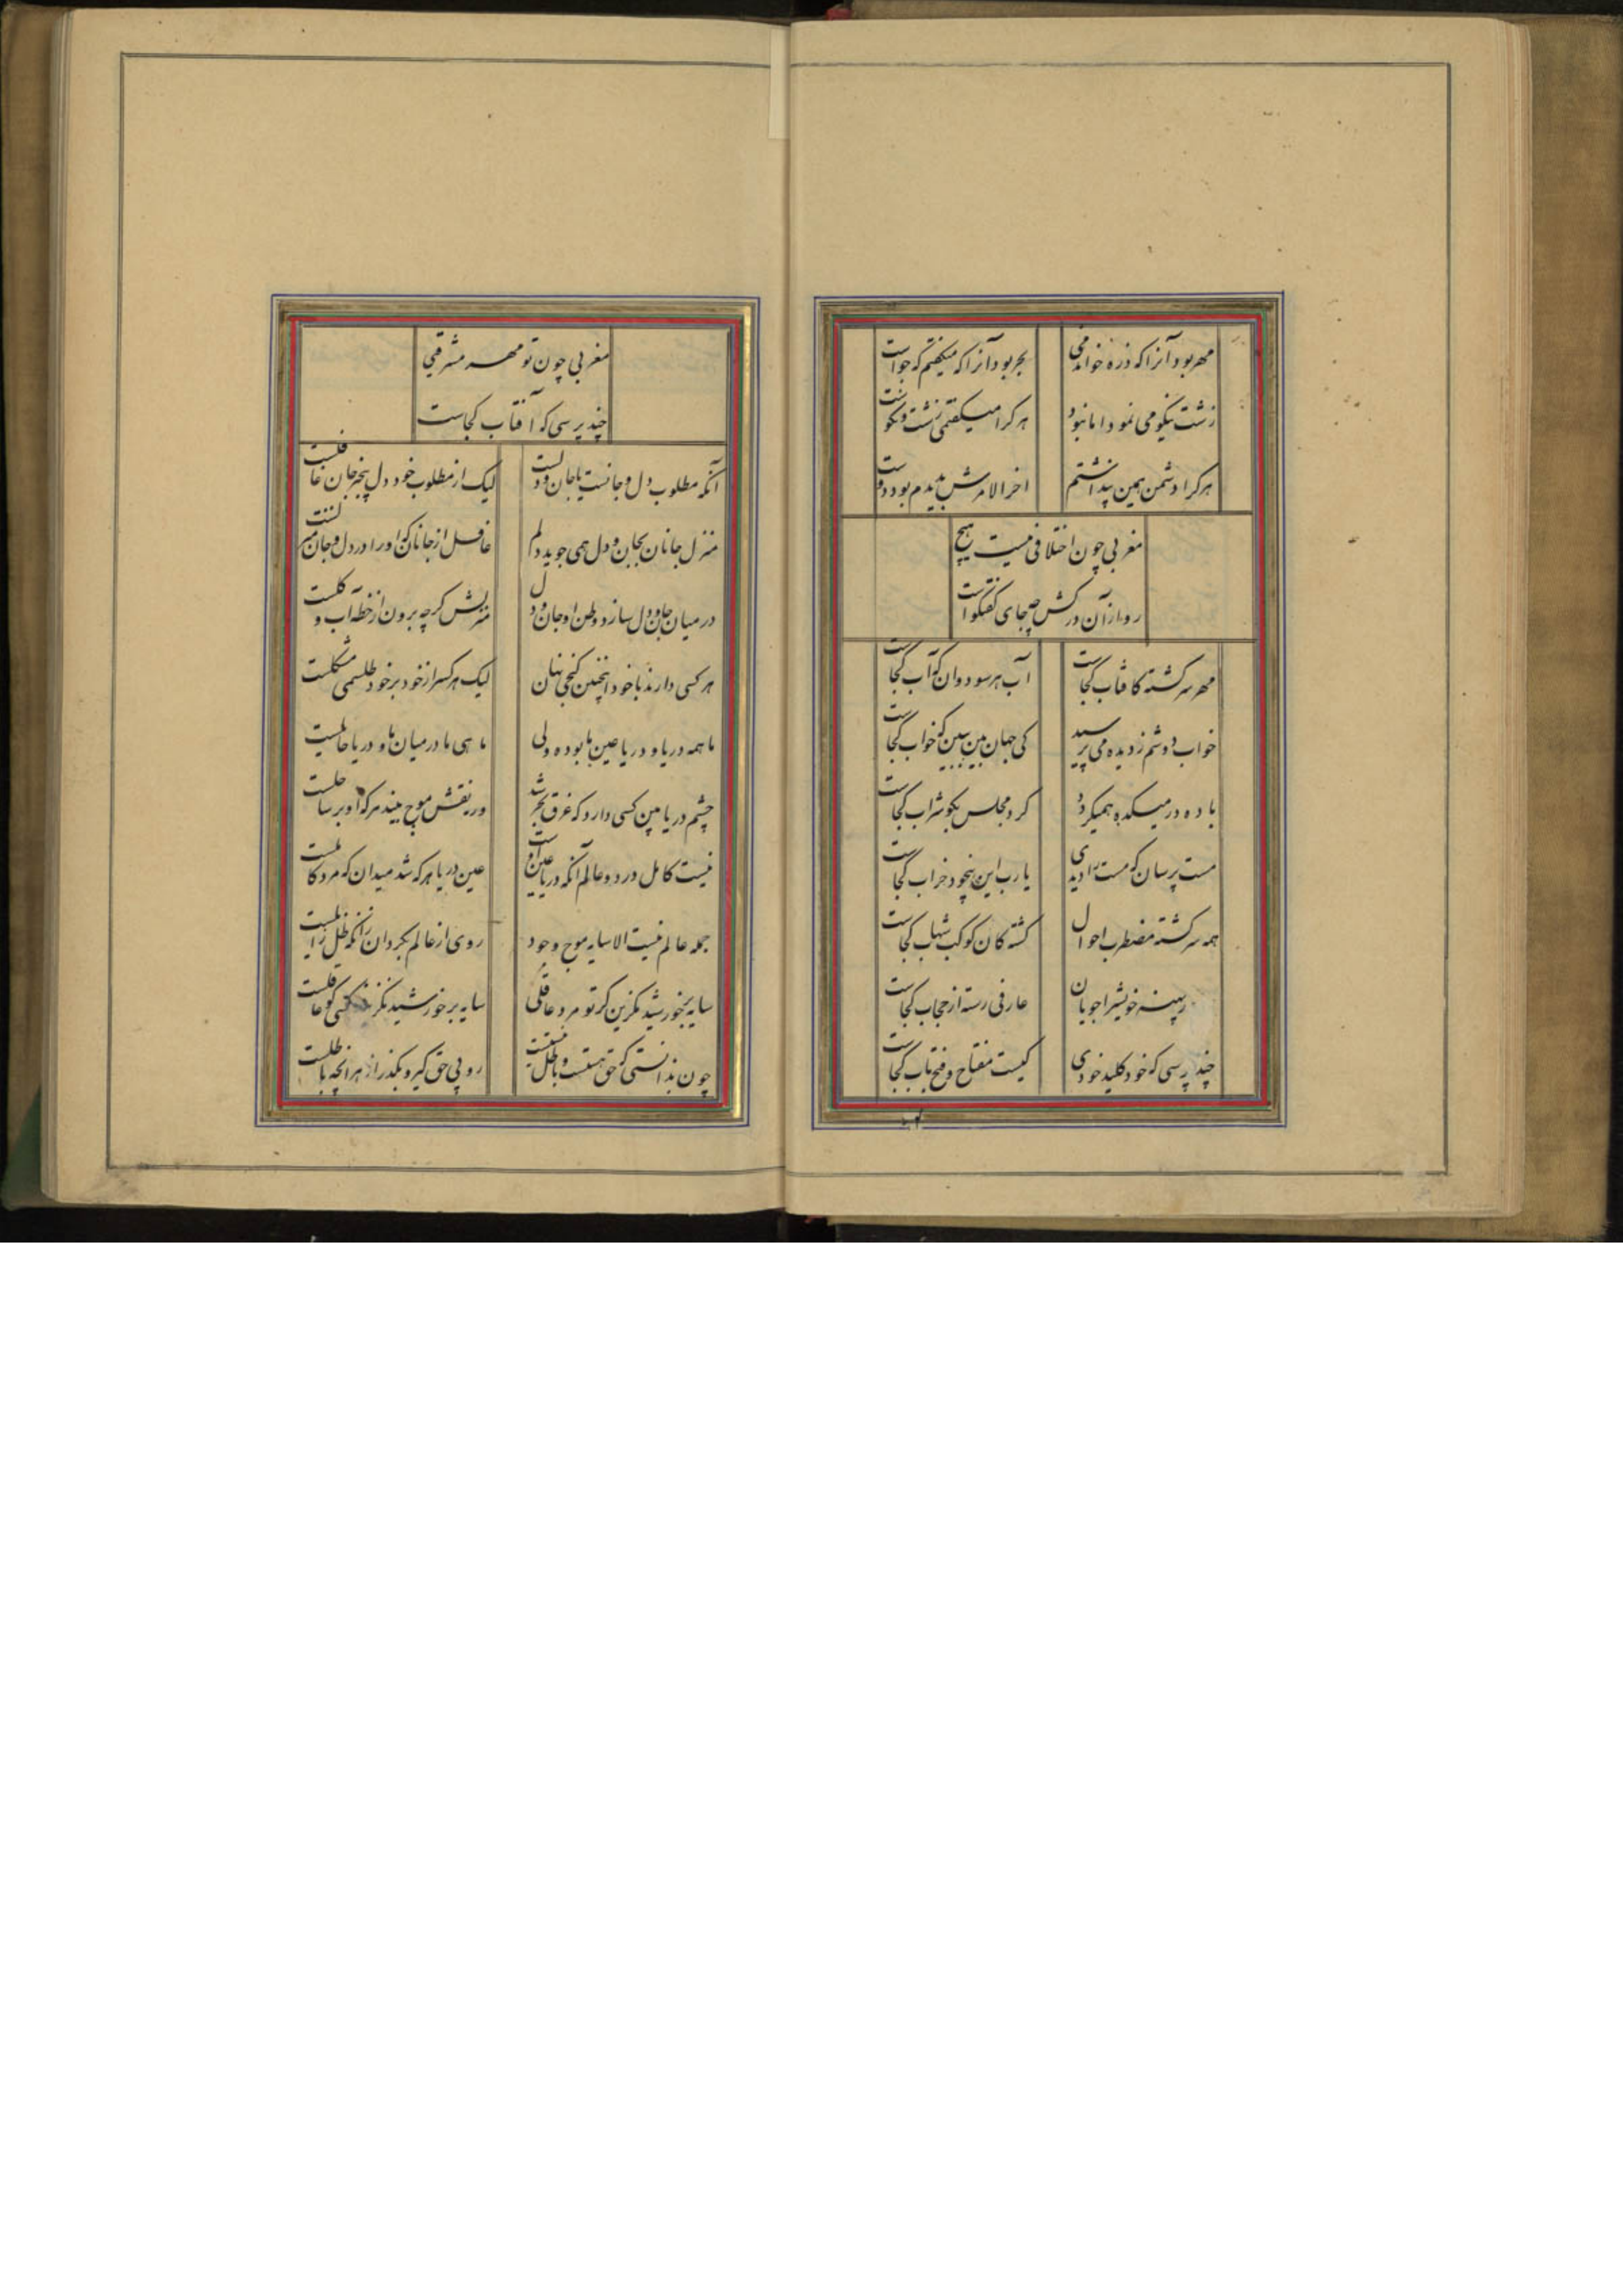 مهر بود آنرا که ذره خواندمی
بحر بود آنرا که میگفتم که جو است
زشت نیکو می نمود اما نبود
هر کرا میگفتمی زشت و نکو است
هر کرا دشمن همین پنداشتم
اخر الامرش بدیدم بود دوست
مغربی چون اختلافی نیست هیچ
رو از آن درکش چه جای گفتگو است
مهر سرگشته کافتاب کجاست
آب هر سو دوان که آب کجاست
خواب دوشم ز دیده می پرسید
کی جهان بین ببین که خواب کجاست
باده در میکده همیکردد
کرد مجلس بگو شراب کجاست
مست پرسان که مست را دیدی
یا رب این بیخود خراب کجاست
همه سرگشته مضطرب احوال
گشته کان کوکب شهاب کجاست
خویشرا جویان
عارفی رسته از حجاب کجاست
چند پرسی که خود کلید خودی
کیست مفتاح و فتح باب کجاست
مغربی چون تو مهر مشرقی
چند پرسی که آفتاب کجاست
آنکه مطلوب دل و جانست با جان و دلست
لیک از مطلوب خود دل بیخبر جان غافلست
منزل جانان بجان و دل همی جوید دلم
غافل از جانان که او را در دل و جان منزلست
در میان جان و دل سازد وطن او جان و دل
منزلش گرچه برون از خطه آب و گلست
هر کسی دارند با خود اینچنین گنجی نهان
لیک هر کس را ز خود بر خود طلسمی مشکلست
ما همه دریا و دریا عین ما بوده ولی
ما هی ما در میان ما و دریا حایلست
چشم دریا بین کسی دارد که غرق بحر شد
ور نه نقش موج بیند هر که او بر ساحلست
نیست کامل در دو عالم آنکه دریا عین اوست
عین دریا هر که شد میدان که مرد کاملست
جمله عالم نیست الا سایه موج وجود
روی از عالم بگردان زانکه ظل زایلست
سایه بر خورشید مگزین گر تو مرد عاقلی
سایه بر خورشید نگزیند کسی کو عاقلست
چون بدانستی که حق هستست و باطل نیستست
رو پی حق گیر و بگذر از هر آنچه باطلست